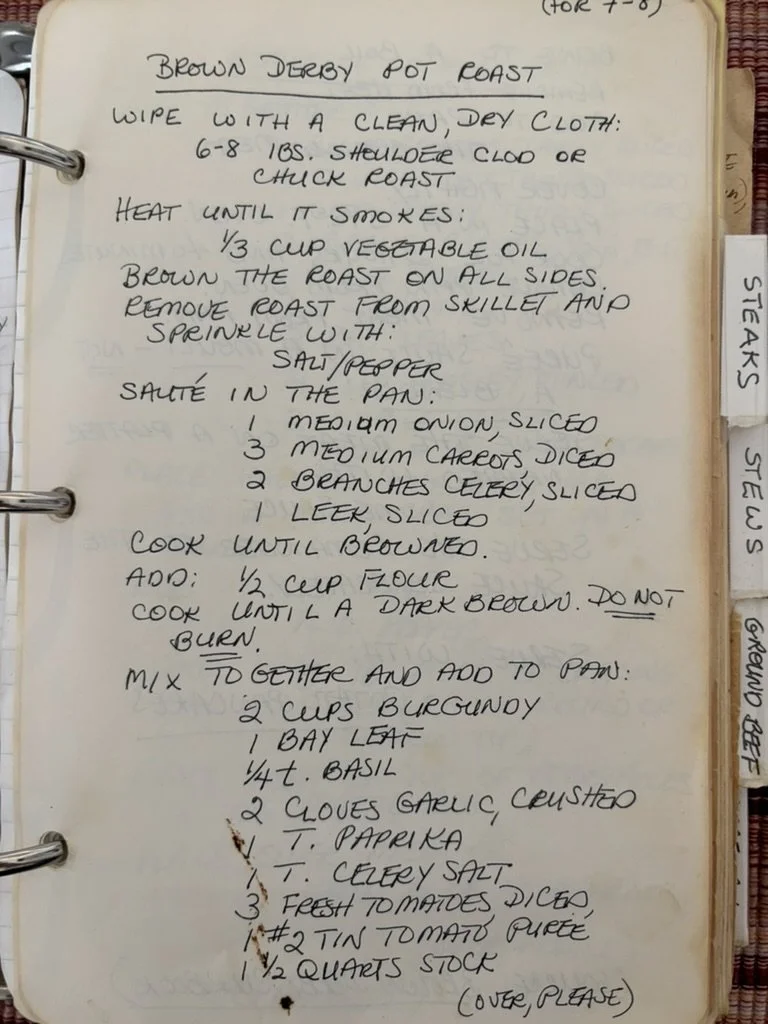 (FOR 7-8)
BROWN DERBY POT ROAST
WIPE WITH A CLEAN, DRY CLOTH:
6-8 lBS. SHOULDER CLOD OR
CHUCK ROAST
HEAT UNTIL IT SMOKES:
1/3 CUP VEGETABLE OIL
BROWN THE ROAST ON ALL SIDES.
REMOVE ROAST FROM SKILLET AND
SPRINKLE WITH:
SALT/PEPPER
SAUTÉ IN THE PAN:
1 MEDIUM ONION, SLICED
3 MEDIUM CARROTS, DICED
2 BRANCHES CELERY, SLICED
1 LEEK, SLICED
COOK UNTIL BROWNED.
ADD: 1/2 CUP FLOUR
COOK UNTIL A DARK BROWN. DO NOT
BURN.
MIX TOGETHER AND ADD TO PAN:
2 CUPS BURGUNDY
1 BAY LEAF
1/4 t. BASIL
2 CLOVES GARLIC, CRUSHED
1 T. PAPRIKA
1 T. CELERY SALT
3 FRESH TOMATOES, DICED,
1 #2 TIN TOMATO PUREÉ
1 1/2 QUARTS STOCK
(OVER, PLEASE)
STEAKS
STEWS
GROUND BEEF